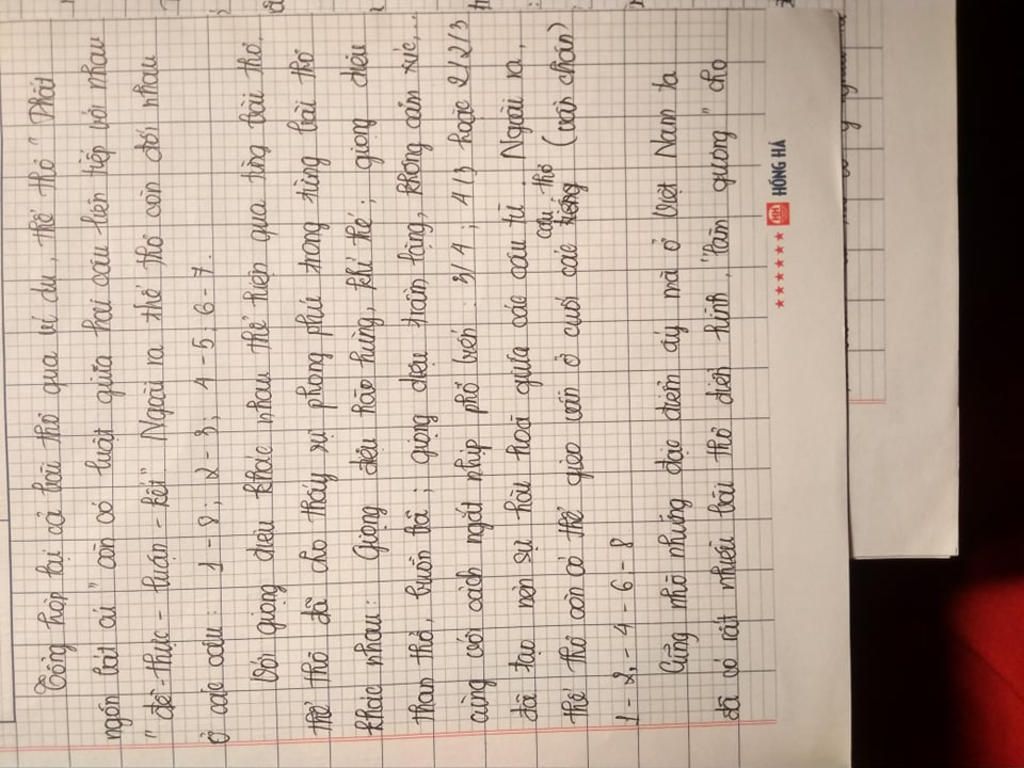 Tổng hợp lại cả bài thơ qua ví dụ, thể thơ "Thất
ngôn bát cú" còn có luật giữa hai câu liên tiếp với nhau
"đề - thực - luận - kết". Ngoài ra thể thơ còn đối nhau
ở các câu: 1 - 8; 2 - 3; 4 - 5; 6 - 7.
Với giọng điệu khác nhau thể hiện qua từng bài thơ.
thể thơ đã cho thấy sự phong phú trong từng bài thơ
khác nhau: Giọng điệu hào hùng, khí thế; giọng điệu
than thở, buồn bã; giọng điệu trầm lặng, không cảm xúc,..
cùng với cách ngắt nhịp phổ biến: 3/4; 4/3 hoặc 2/2/3
đã tạo nên sự hài hoà giữa các câu từ. Ngoài ra,
thể thơ còn có thể gieo vần ở cuối các câu thơ (vần chân)
1 - 2 - 4 - 6 - 8
Cũng nhờ những đặc điểm ấy mà ở Việt Nam ta
đã có rất nhiều bài thơ điển hình, "tấm gương" cho
HỒNG HÀ